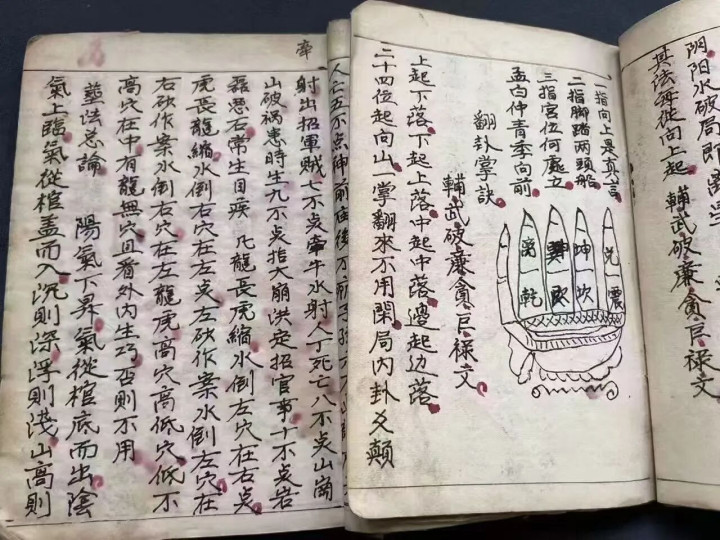 阴阳水破局即
其法每從向上起 輔武破廉貪巨祿文
一指向上是真言
二指脚踏两頭船
三指宮位何處立
孟向仲青季向前
翻卦掌訣
兌震
坤坎
离乾
輔武破廉貪巨禄文
上起下落下起上落中起中落邊起边落
二十四位起向山一掌翻來不用閑局内卦爻顛
牵
人亡五不点伸前
射出招軍賊七不点牵牛水射人丁死亡八不点山崗
山破祸患時生九不点指大崩洪定招官事十不点岩
磊恶石常生目疾 凡龍長虎縮水倒左穴在右点
虎長龍縮水倒右穴在左点左砂作案水倒左穴在
右砂作案水倒右穴在左龍虎高穴高低穴低不
高穴在中有龍無穴且看外内生巧否則不用
塟法总論 陽氣下昇氣從棺底而出陰
氣上臨氣從棺盖而入沉則深浮則淺山高則